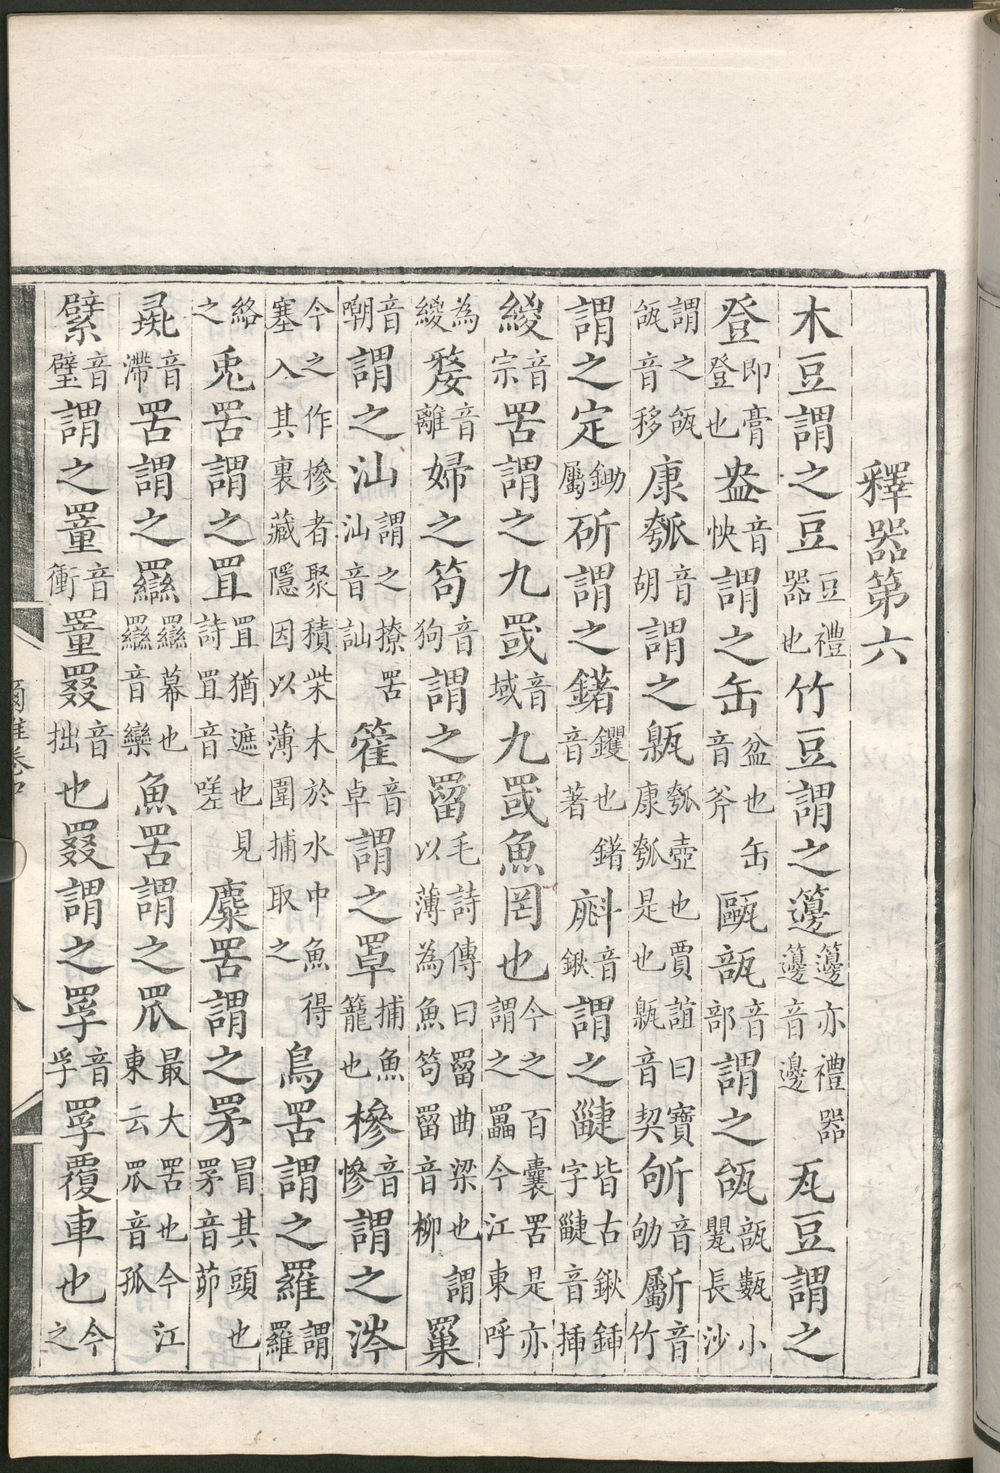 釋器第六
木豆謂之豆豆禮器也竹豆謂之籩籩亦禮器籩音邊瓦豆謂之
登即膏登也盎音怏謂之缶盆也缶音斧甌瓿音部謂之瓵瓿甊小甖長沙
謂之瓵瓵音移康瓠音胡謂之甈瓠壺也賈誼曰寶康瓠是也甈音契斪音劬斸音竹
謂之定鋤屬斫謂之鐯钁也鐯音著𣂁音鍬謂之疀皆古鍬鍤字疀音揷
緵音宗罟謂之九罭音域九罭魚罔也今之百囊罟是亦謂之䍡今江東呼
為緵嫠音離婦之笱音狗謂之罶毛詩傳曰罶曲梁也謂以薄為魚笱罶音柳罺
音嘲謂之汕謂之撩罟汕音訕篧音卓謂之罩捕魚籠也槮音慘謂之涔
今之作槮者聚積柴木於水中魚得塞入其裏藏隱因以薄圍捕取之鳥罟謂之羅謂羅
絡之兔罟謂之罝罝猶遮也見詩罝音嗟麋罟謂之罞冒其頭也罞音茆
彘音滯罟謂之羉羉幕也羉音欒魚罟謂之罛最大罟也今江東云罛音孤
繴音璧謂之罿音衝罿罬音拙也罬謂之罦音孚罦覆車也今之